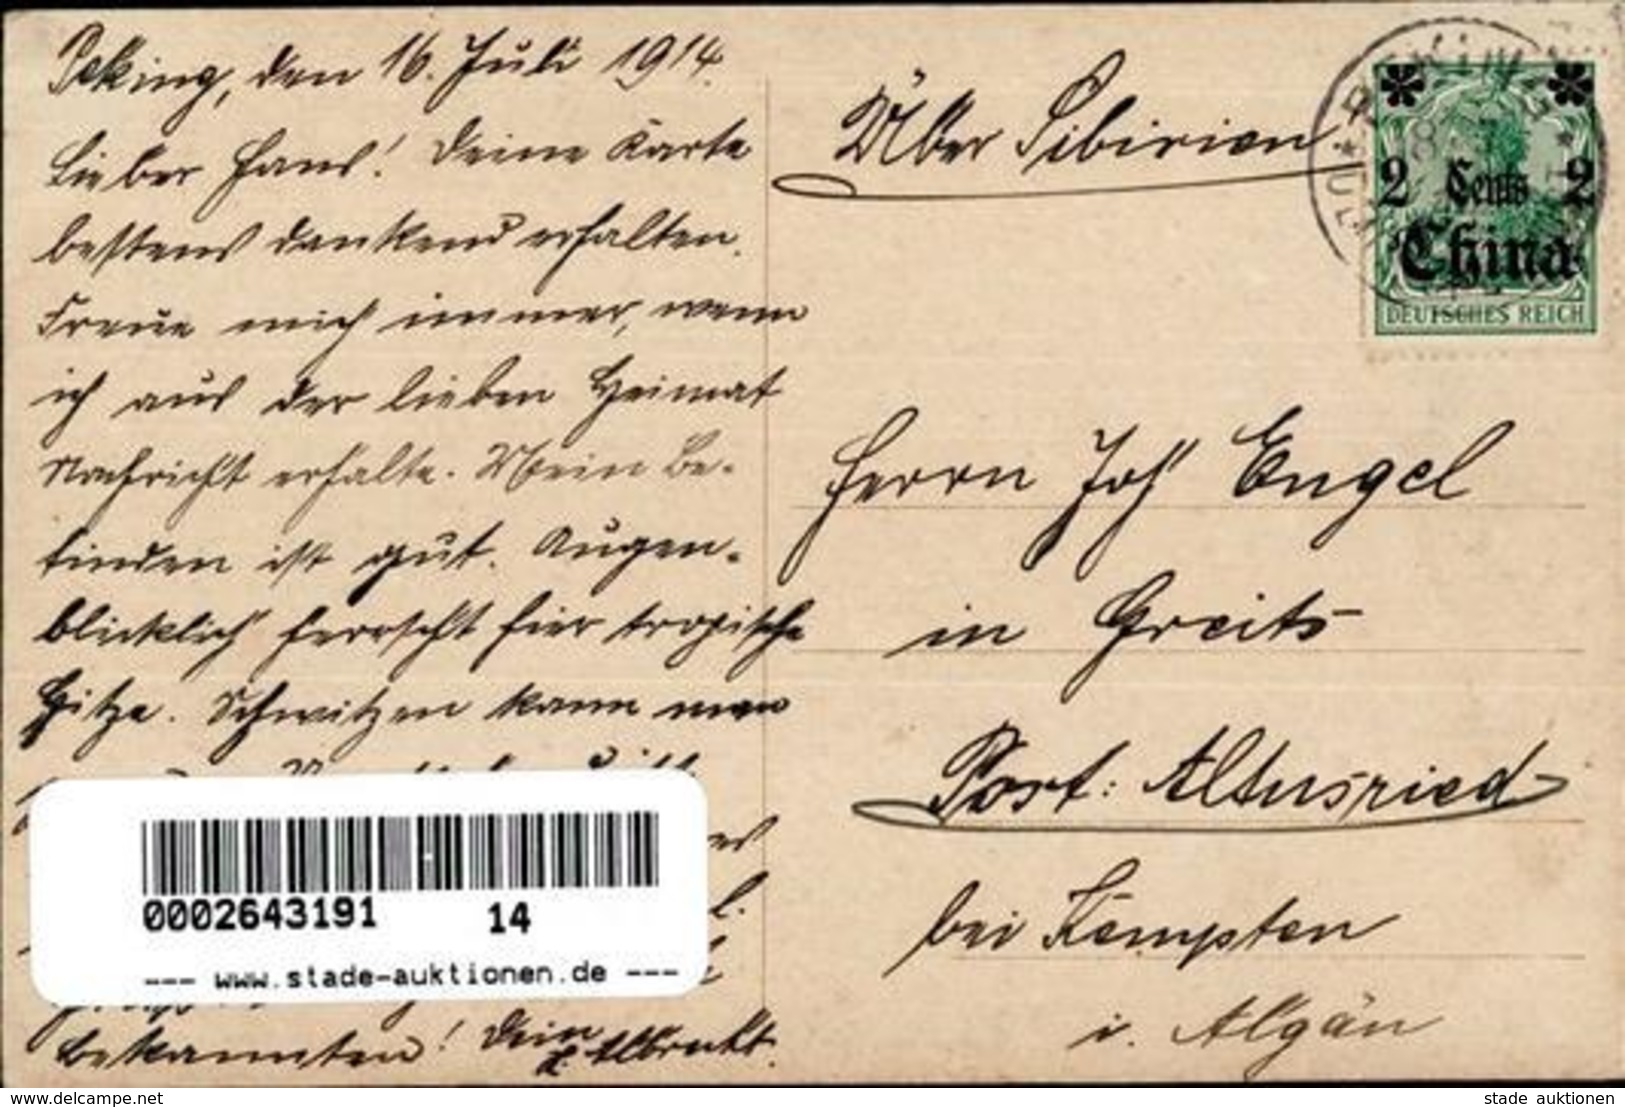 Peking, den 16. Juli 1914.
Lieber Hans! Deine Karte
bestens dankend erhalten.
Freue mich immer, wenn
ich aus der lieben Heimat
Nachricht erhalte. Mein Be-
finden ist gut. Augen-
blicklich herrscht hier tropische
Hitze. Schwitzen kann man
bekannten! Dein
L. Albrecht.
Über Sibirien.
PEKING
2 Cents 2
China
DEUTSCHES REICH
Herrn Joh Engel
in Greits
Post: Altusried
bei Kempten
i. Algäu
0002643191 14
--- www.stade-auktionen.de ---
delcampe.net
stade auktionen